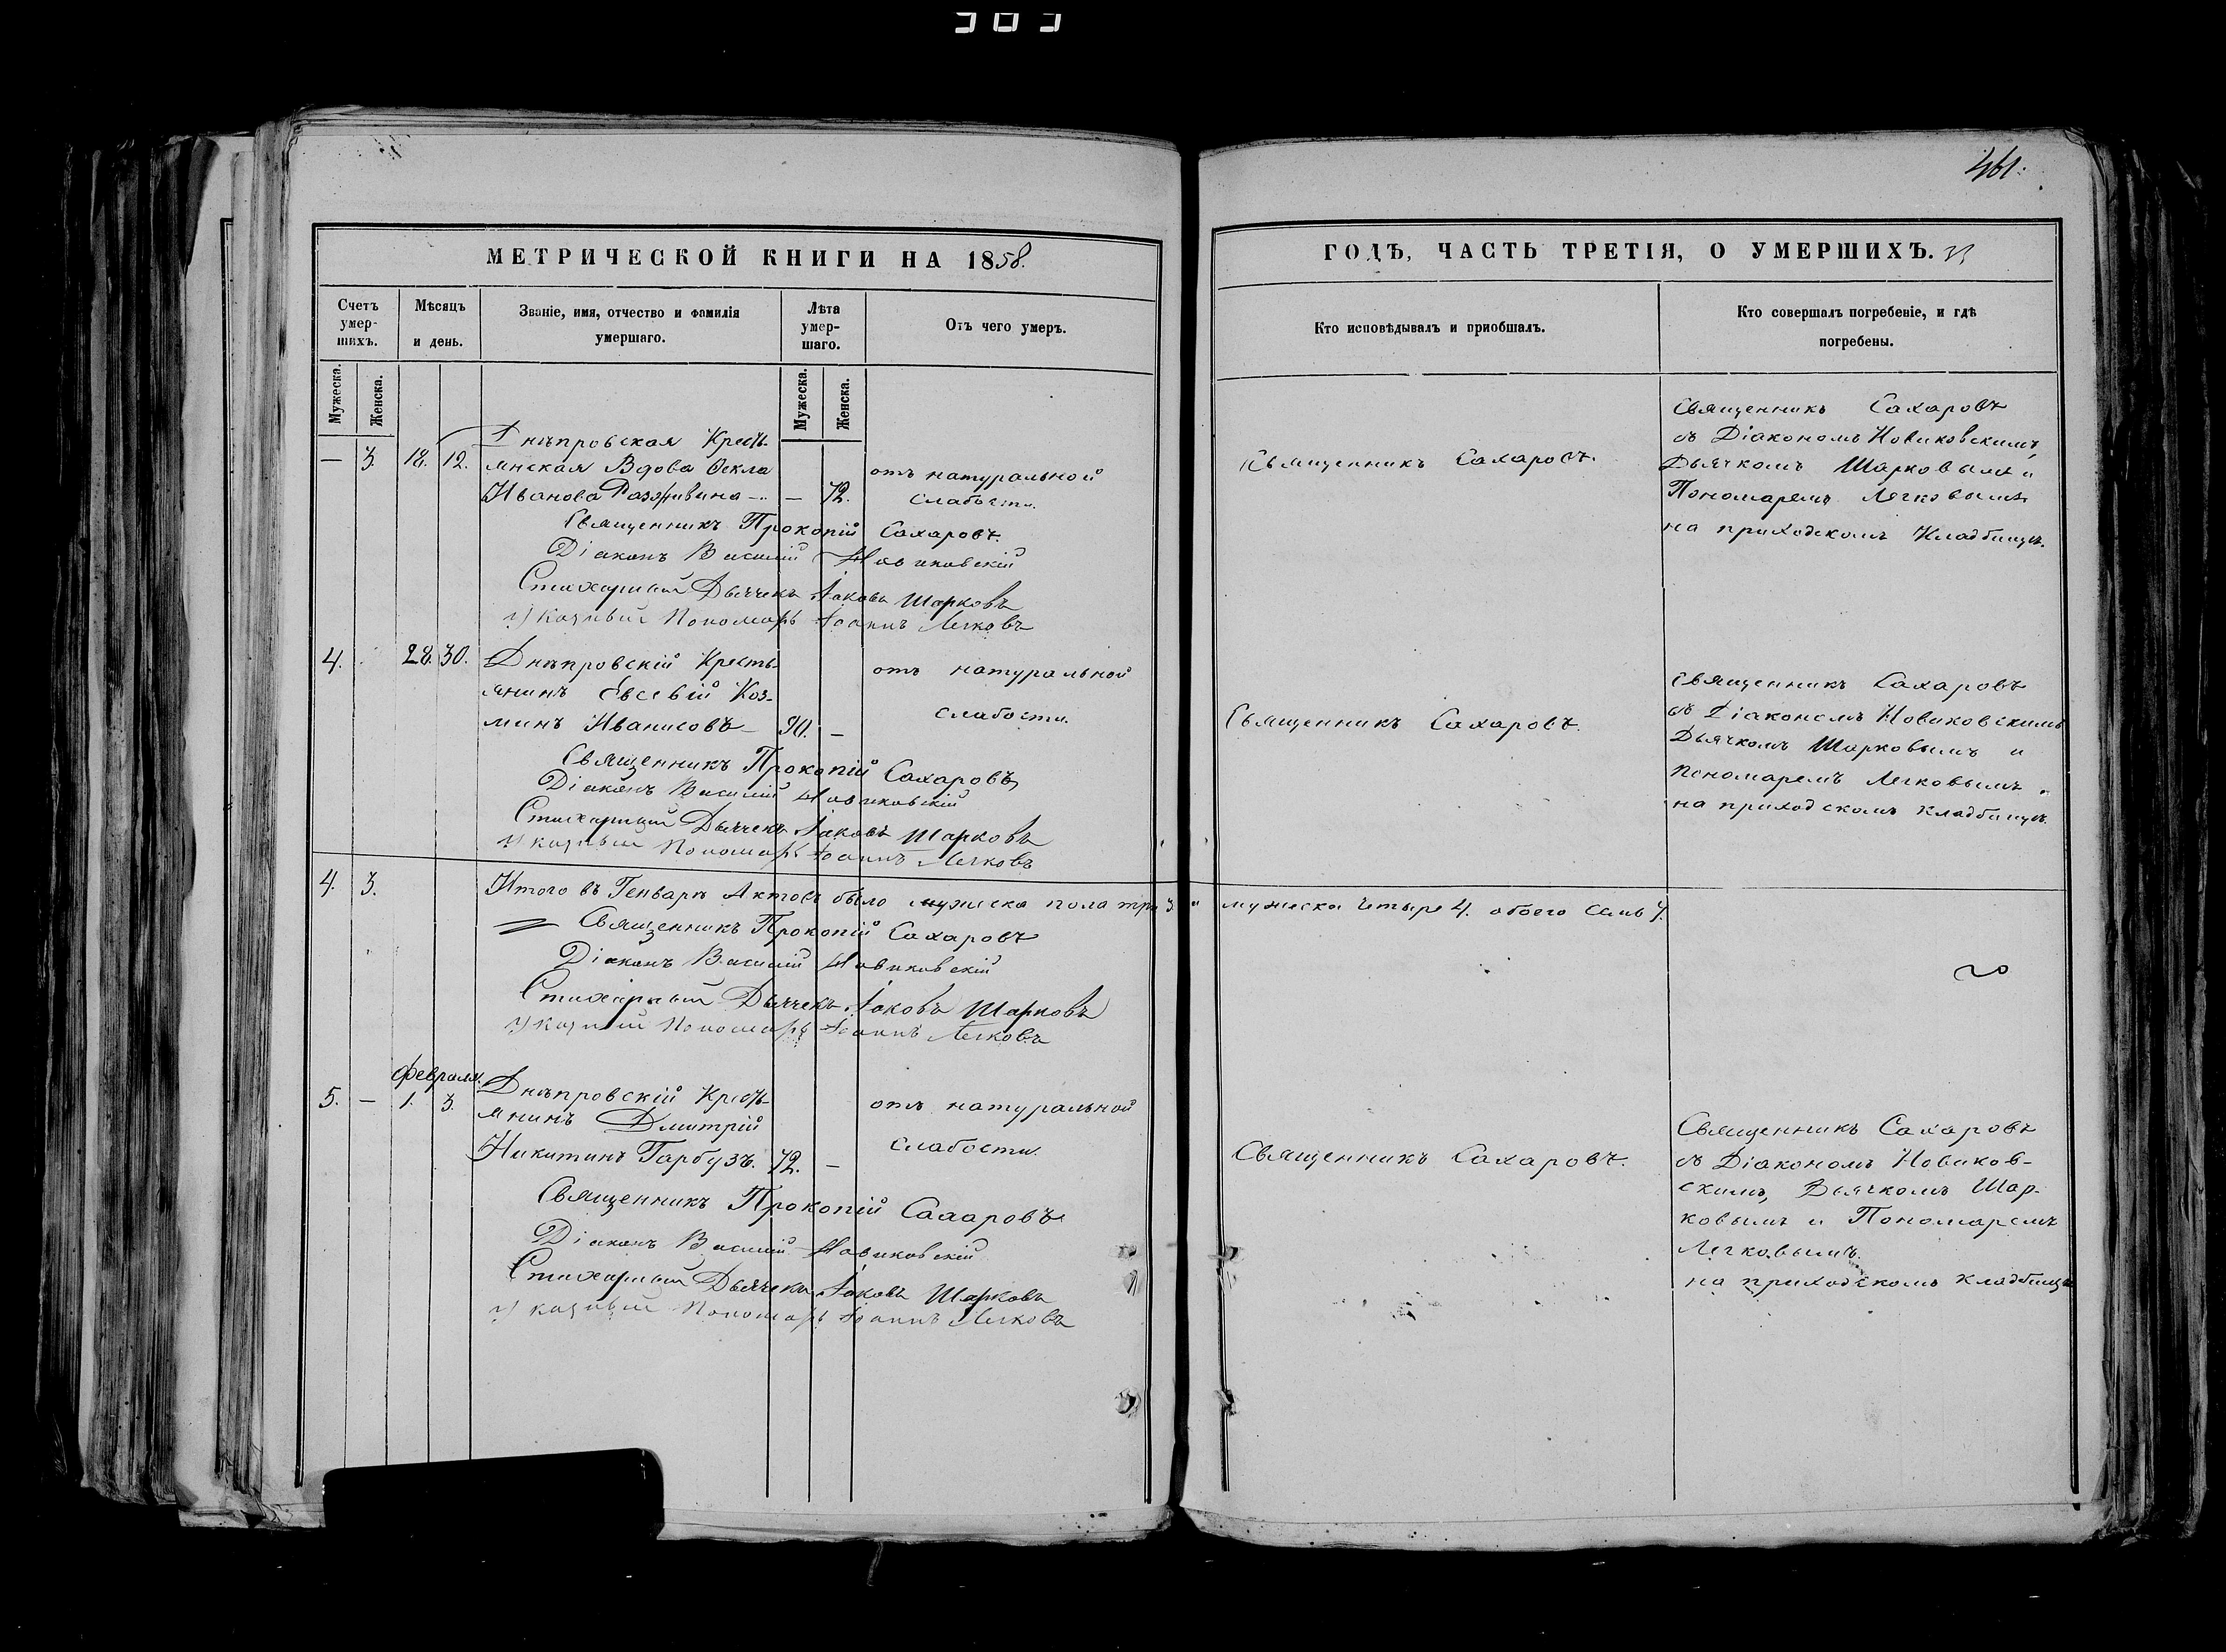 461.
МЕТРИЧЕСКОЙ КНИГИ НА 1858.
ГОДЪ, ЧАСТЬ ТРЕТІЯ, О УМЕРШИХЪ.
Счетъ умер-шихъ.
Мѣсяцъ и день.
Званіе, имя, отчество и фамилія умершаго.
Лѣта умер-шаго.
Отъ чего умеръ.
Кто исповѣдывалъ и приобщалъ.
Кто совершалъ погребеніе, и гдѣ погребены.
Мужеска.
Женска.
Мужеска.
Женска.
— 3. 18. 12.
Днѣпровская Кресть-
янская Вдова Ѳекла
Иванова — 72.
отъ натуральной
слабости.
Священникъ Сахаровъ.
Священникъ Сахаровъ
съ Діакономъ Новиковскимъ,
Дьячкомъ Шарковымъ и
Пономаремъ Легковымъ
на приходскомъ Кладбищѣ.
Священникъ Прокопій Сахаровъ.
Діаконъ Василій Новиковскій
Стихарный Дьячекъ Іаковъ Шарковъ
Указный Пономарь Іоаннъ Легковъ
4. 28. 30.
Днѣпровскій Кресть-
янинъ Евсевій Коз-
минъ Иванисовъ 90. —
отъ натуральной
слабости.
Священникъ Сахаровъ.
Священникъ Сахаровъ
съ Діакономъ Новиковскимъ
Дьячкомъ Шарковымъ и
Пономаремъ Легковымъ
на приходскомъ кладбищѣ.
Священникъ Прокопій Сахаровъ
Діаконъ Василій Новиковскій
Стихарный Дьячекъ Іаковъ Шарковъ
Указный Пономарь Іоаннъ Легковъ
4. 3.
Итого въ Генварѣ Актовъ было мужеска пола три 3. и мужеска четыре 4. обоего семь 7.
Священникъ Прокопій Сахаровъ
Діаконъ Василій Новиковскій
Стихарный Дьячекъ Іаковъ Шарковъ
Указный Пономарь Іоаннъ Легковъ
Февраля.
5. — 1. 3.
Днѣпровскій Кресть-
янинъ Дмитрій
Никитинъ Гарбузъ. 72. —
отъ натуральной
слабости.
Священникъ Сахаровъ.
Священникъ Сахаровъ
съ Діакономъ Новиков-
скимъ, Дьячкомъ Шар-
ковымъ и Пономаремъ
Легковымъ.
на приходскомъ кладбищѣ
Священникъ Прокопій Сахаровъ
Діаконъ Василій Новиковскій
Стихарный Дьячекъ Іаковъ Шарковъ
Указный Пономарь Іоаннъ Легковъ